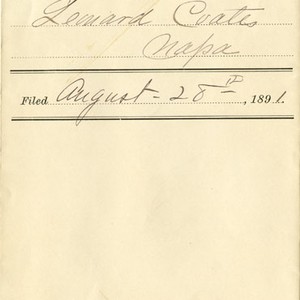 Leonard Coates
Napa
Filed August - 28th, 1891.